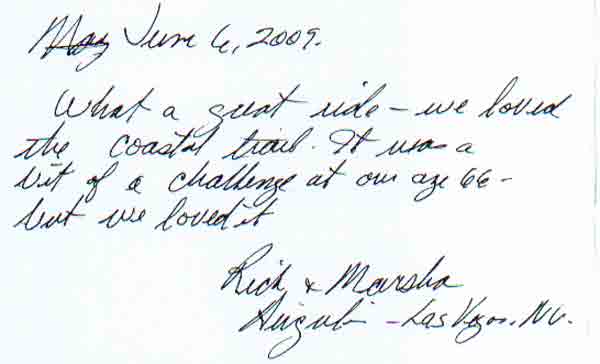 May June 6, 2009.
What a great ride - we loved
the coastal trail. It was a
bit of a challenge at our age 66 -
but we loved it
Rick & Marsha
- Las Vegas, NV.